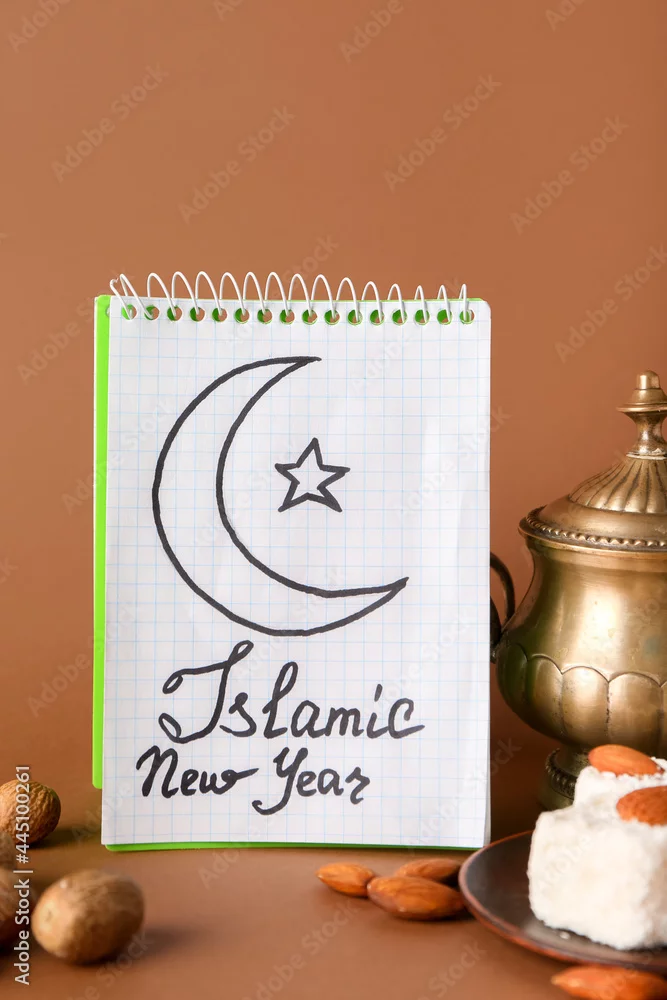 Islamic
New Year
Adobe Stock | #445100261